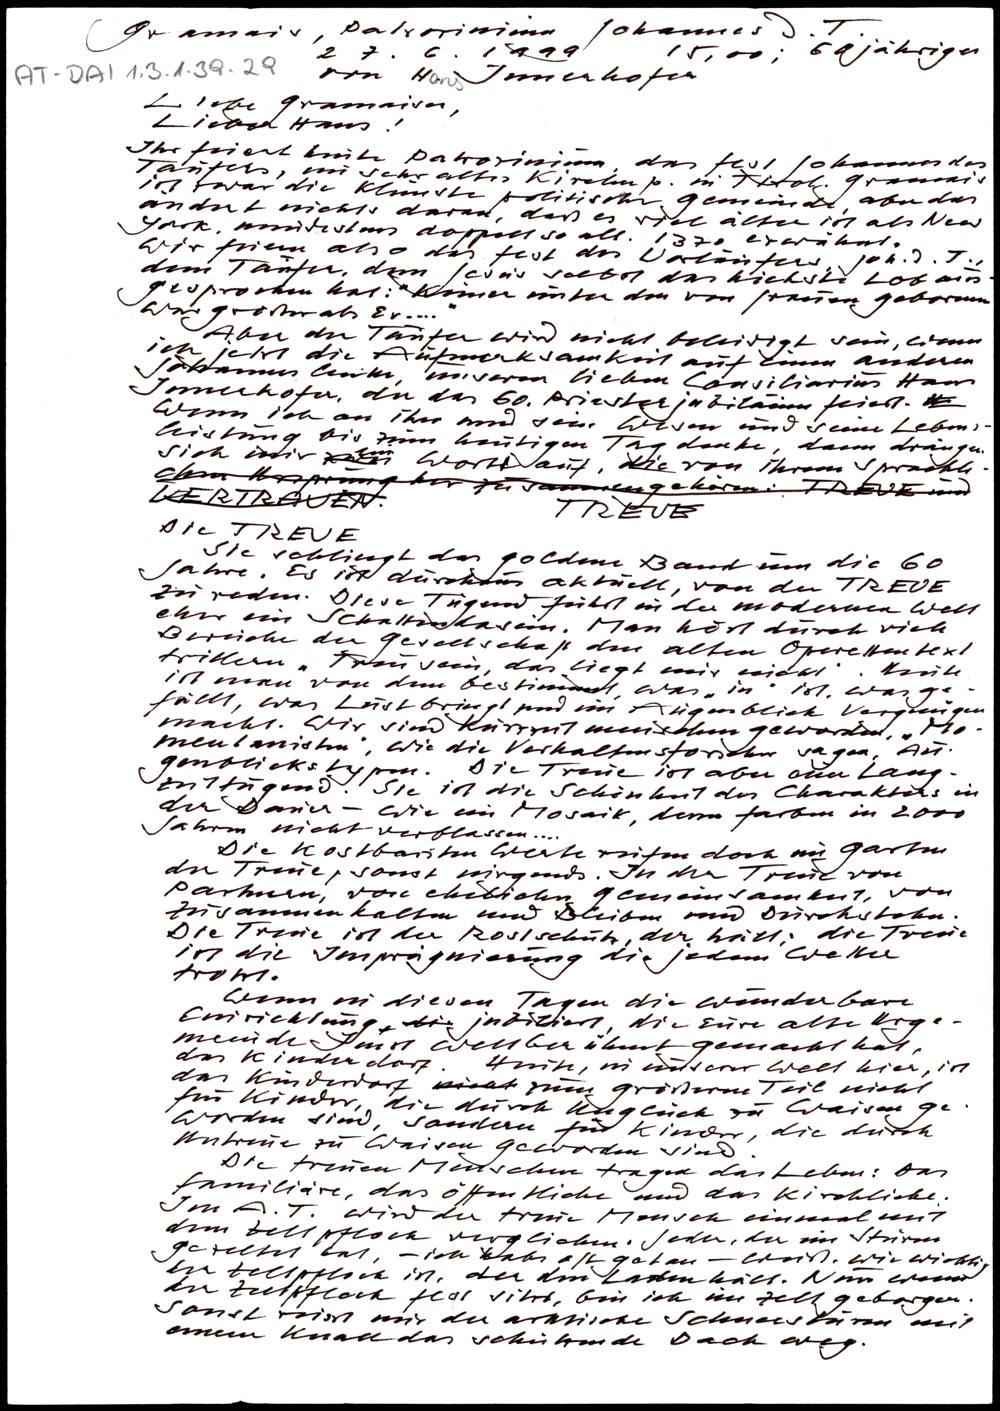 Gramais, Patrozinium Johannes d. T.
27. 6. 1999 15,00; 60jähriges
AT-DAI 1.3.1.39.29
von Hans Innerhofer
Liebe Gramaiser,
Lieber Hans!
Ihr feiert heute Patrozinium, das fest Johannes des
Täufers, ein sehr altes Kirchenp. in Tirol. Gramais
ist zwar die kleinste politische Gemeinde, aber das
ändert nichts daran, daß es viel älter ist als New
York, mindestens doppelt so alt. 1370 erwähnt.
Wir feiern also das fest des Vorläufers, Joh. d. T.,
dem Täufer, dem Jesus selbst das höchste Lob aus-
gesprochen hat: "Keiner unter den von frauen geborenen
war größer als Er...."
Aber der Täufer wird nicht beleidigt sein, wenn
ich jetzt die Aufmerksamkeit auf einen anderen
Johannes lenke, unseren lieben Consiliarius Hans
Innerhofer, der das 60. Priesterjubiläum feiert.
Wenn ich an ihn und sein Wesen und seine Lebens-
leistung bis zum heutigen Tag denke, dann drängen
sich mir ein Wort auf, die von ihrem sprachli-
chen Ursprung her zusammengehören: TREUE und
VERTRAUEN. TREUE
Die TREUE
Sie schlingt das goldene Band um die 60
Jahre. Es ist durchaus aktuell, von der TREUE
zu reden. Diese Tugend führt in der modernen Welt
eher ein Schattendasein. Man hört durch viele
Bereiche der Gesellschaft den alten Operettentext
trillern „Treu sein, das liegt mir nicht". Heute
ist man von dem bestimmt, was „in" ist, was ge-
fällt, was Lust bringt und im Augenblick Vergnügen
macht. Wir sind Kurzzeitmenschen geworden, „Mo-
mentanisten", wie die Verhaltensforscher sagen, Au-
genblickstypen. Die Treue ist aber eine Lang-
zeittugend. Sie ist die Schönheit des Charakters in
der Dauer – wie ein Mosaik, denn farben in 2000
Jahren nicht verblassen....
Die kostbarsten Werte reifen doch im Garten
der Treue, sonst nirgends. In der Treue von
Partnern, von ehelicher Gemeinsamkeit, von
Zusammenhalten und Bleiben und Durchstehn.
Die Treue ist der Rostschutz, der hält; die Treue
ist die Imprägnierung die jedem Wetter
trotzt.
Wenn in diesen Tagen die wunderbare
Einrichtung, die jubiliert, die Eure alte Urge-
meinde Imst weltberühmt gemacht hat,
das Kinderdorf. Heute, in unserer Welt hier, ist
das Kinderdorf nicht zum größeren Teil nicht
für Kinder, die durch Unglück zu Waisen ge-
worden sind, sondern für Kinder, die durch
Untreue zu Waisen geworden sind.
Die treuen Menschen tragen das Leben: Das
familiäre, das öffentliche und das kirchliche.
Im A. T. wird der treue Mensch einmal mit
dem Zeltpflock verglichen. Jeder, der im Sturm
gezeltet hat, – ich habs oft getan – weiß, wie wichtig
der Zeltpflock ist, der den Laden hält. Nur wenn
der Zeltpflock fest sitzt, bin ich im Zelt geborgen.
Sonst reißt mir der arktische Schneesturm mit
einem Knall das schützende Dach weg.